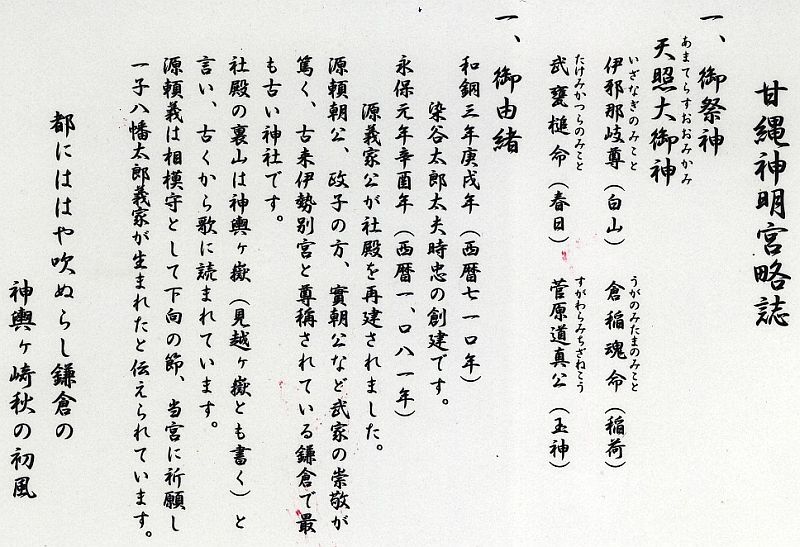 甘縄神明宮略誌
一、御祭神
あまてらすおおみかみ
天照大御神
いざなぎのみこと うがのみたまのみこと
伊邪那岐尊(白山) 倉稲魂命(稲荷)
たけみかつちのみこと すがわらみちざねこう
武甕槌命(春日) 菅原道真公(玉神)
一、御由緒
和銅三年庚戌年(西暦七一〇年)
染谷太郎太夫時忠の創建です。
永保元年辛酉年(西暦一、〇八一年)
源義家公が社殿を再建されました。
源頼朝公、政子の方、實朝公など武家の崇敬が
篤く、古来伊勢別宮と尊称されている鎌倉で最
も古い神社です。
社殿の裏山は神輿ヶ嶽(見越ヶ嶽とも書く)と
言い、古くから歌に読まれています。
源頼義は相模守として下向の節、当宮に祈願し
一子八幡太郎義家が生まれたと伝えられています。
都にははや吹ぬらし鎌倉の
神輿ヶ崎秋の初風